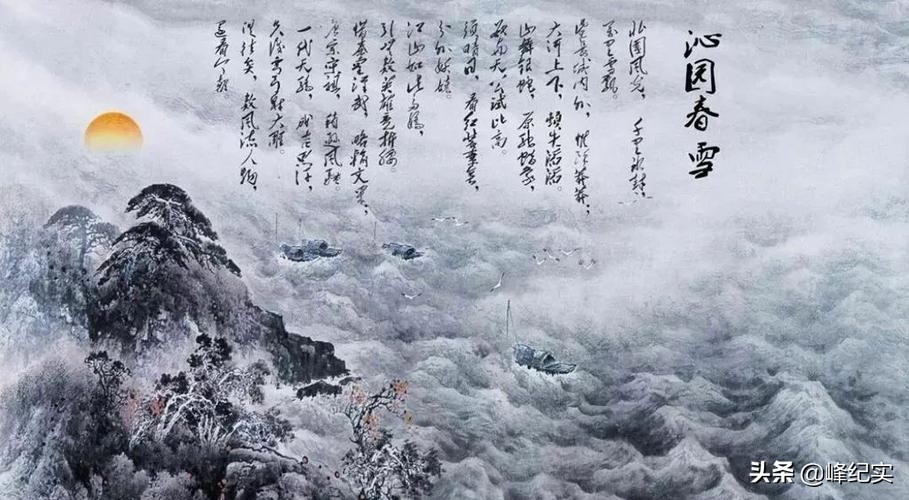 沁园春 雪
北国风光，千里冰封，
万里雪飘。
望长城内外，惟余莽莽，
大河上下，顿失滔滔。
山舞银蛇，原驰蜡象，
欲与天公试比高。
须晴日，看红装素裹，
分外妖娆。
江山如此多娇，
引无数英雄竞折腰。
惜秦皇汉武，略输文采，
唐宗宋祖，稍逊风骚。
一代天骄，成吉思汗，
射大雕。
俱往矣，数风流人物，
还看今朝
头条 @峰纪实